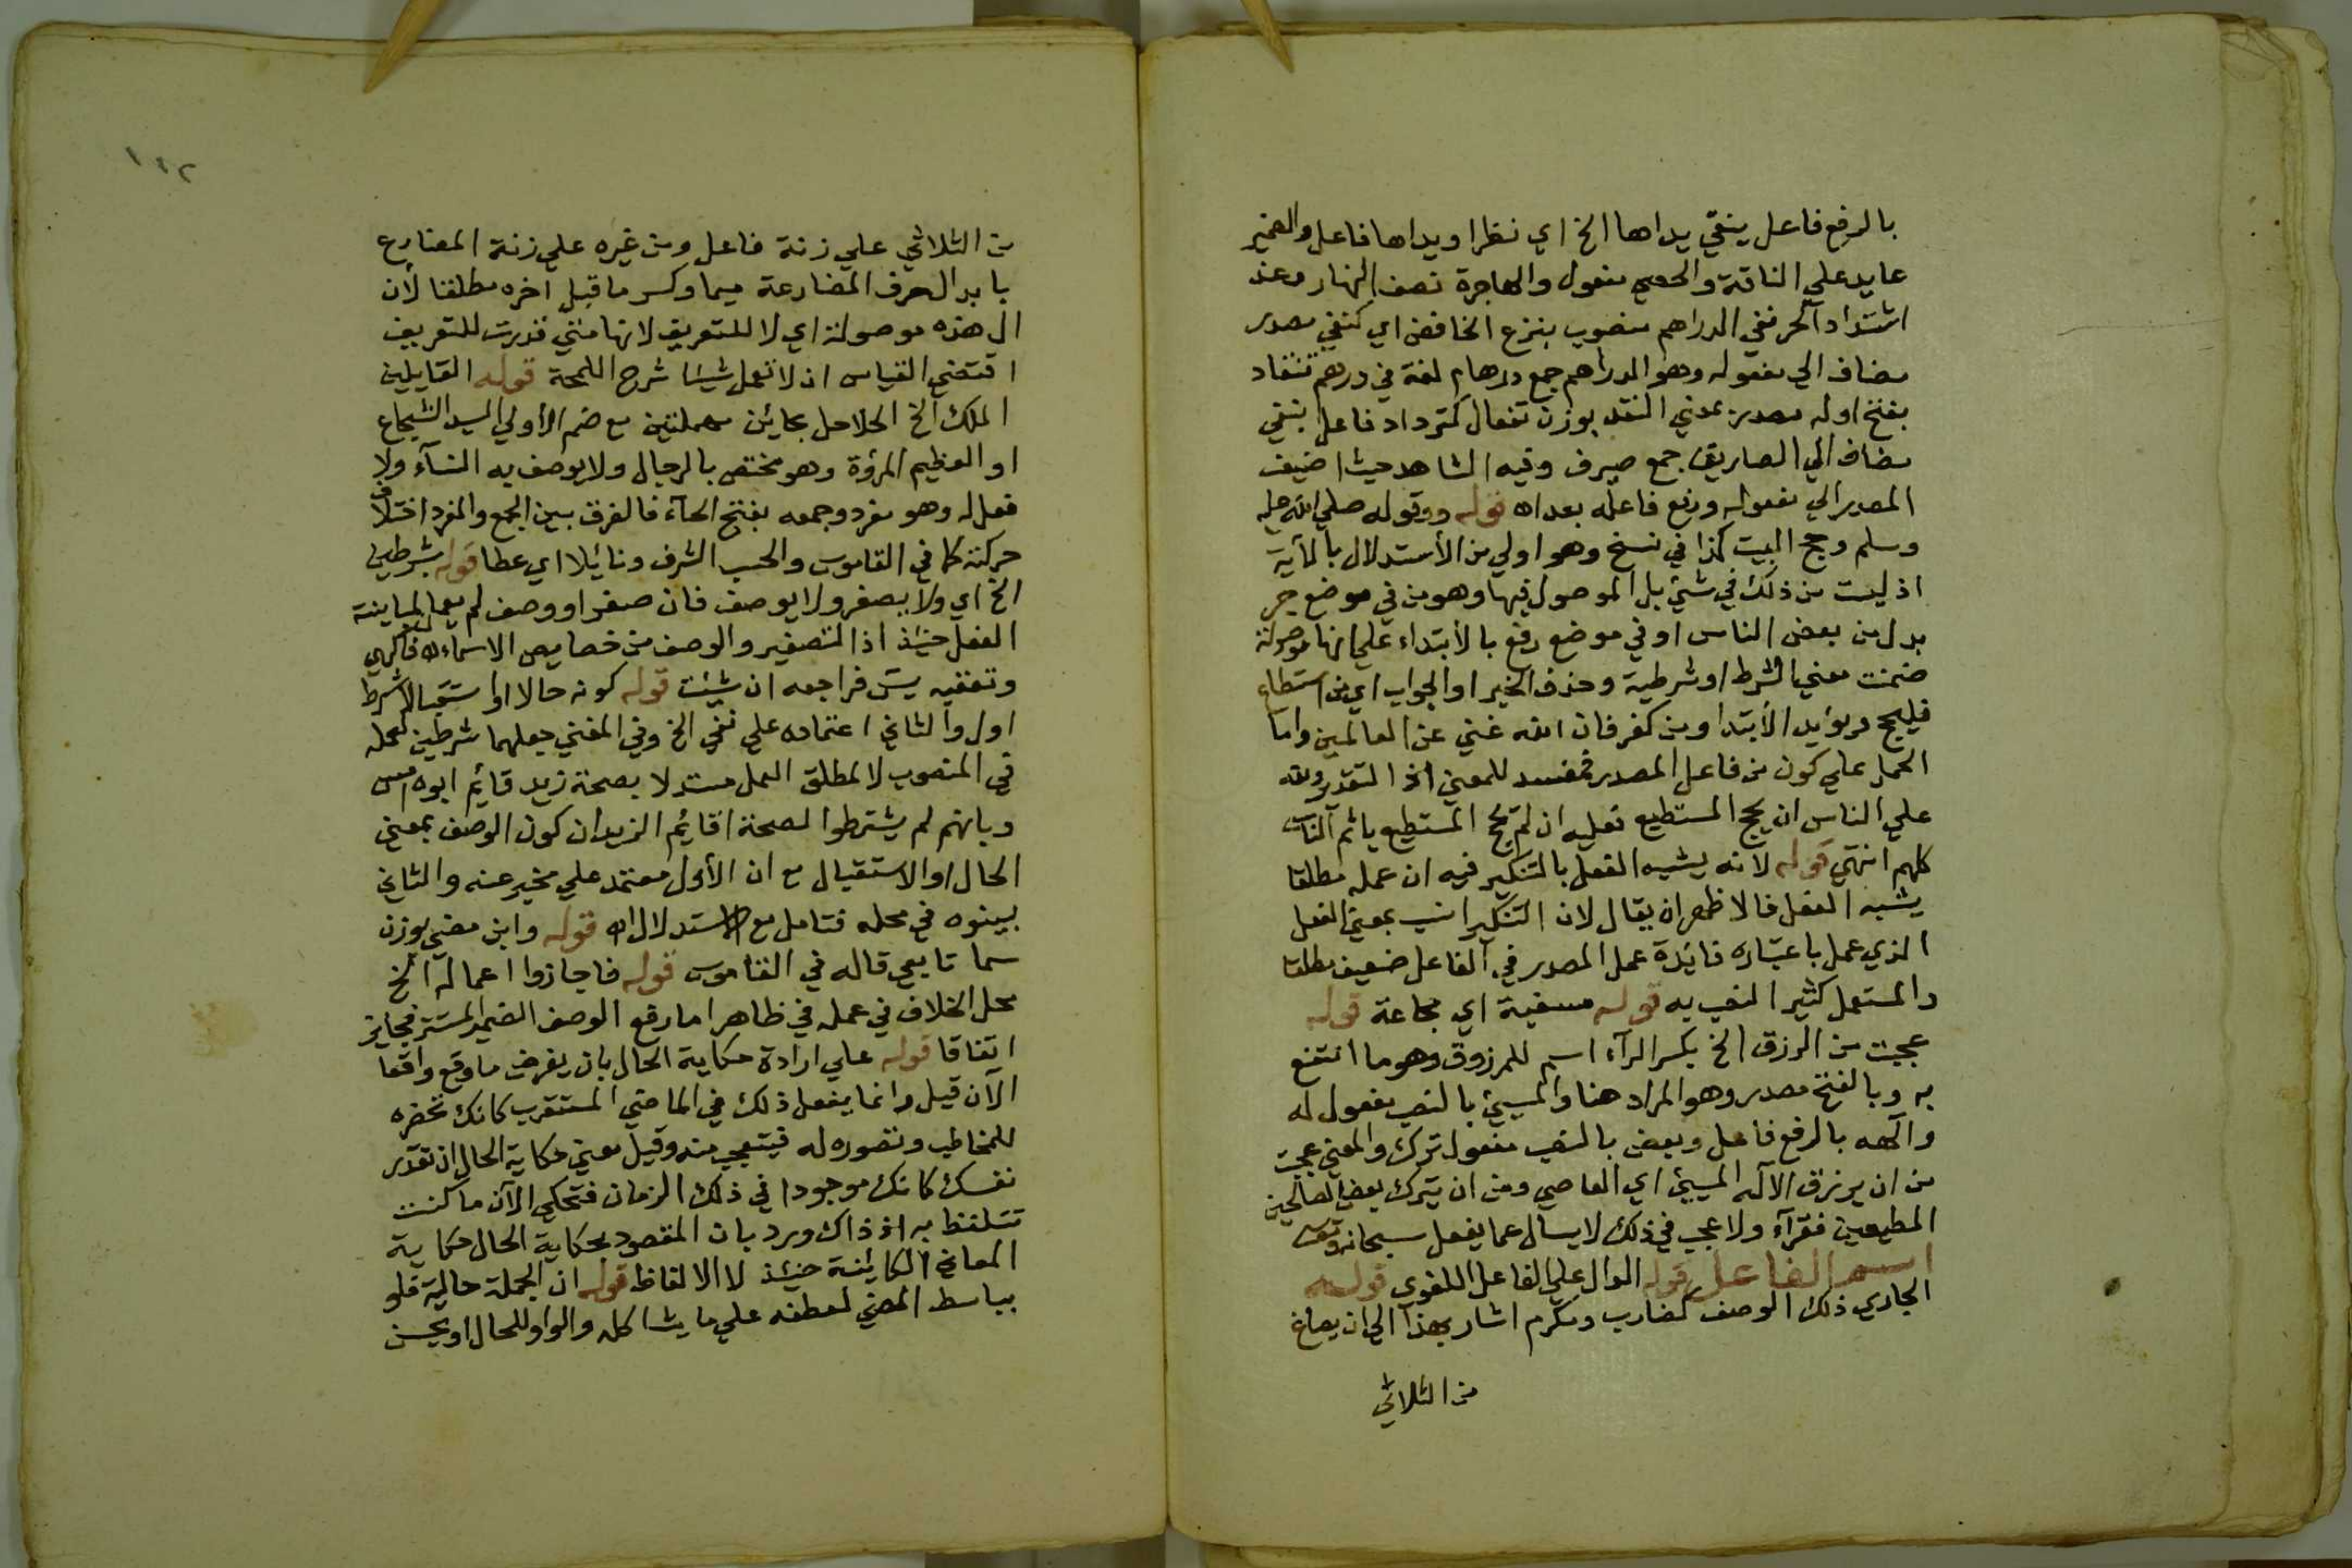 بالرفع فاعل ينفي يداها الخ اي نظرا ويداها فاعل والضمير
عايد علي الناقة والحصي مفعول والهاجرة نصف النهار وعند
اشتداد الحر نفي الدراهم منصوب بنزع الخافض اي كنفي مصدر
مضاف الي مفعوله وهو الدراهم جمع درهام لغة في درهم تنقاد
بفتح اوله مصدر بمعني النقد بوزن تفعال كترداد فاعل بنفي
مضاف الي الصياريف جمع صيرف وفيه الشاهد حيث اضيف
المصدر الي مفعوله ورفع فاعله بعد اه قوله ووقوله صلي الله عليه
وسلم وحج البيت كذا في نسخ وهو اولي من الأستدلال بالأية
اذ ليست من ذلك في شئ بل الموصول فيها وهو من في موضع جر
بدل من بعض الناس او في موضع رفع بالأبتداء علي انها موصولة
ضمنت معني الشرط او شرطية وحذف الخبر او الجواب اي من استطاع
فليحج ويؤيد الأبتدا ومن كفر فان الله غني عن العالمين واما
الحمل علي كون من فاعل المصدر فمفسد للمعني اذ التقدير ولله
علي الناس ان يحج المستطيع فعليه ان لم يحج المستطيع ياثم الناس
كلهم انتهي قوله لانه يشبه الفعل بالتنكير فيه ان عمله مطلقا
يشبه الفعل فالاظهر ان يقال لان التنكير انسب بمعني الفعل
الذي عمل باعتباره فائدة عمل المصدر في الفاعل ضعيف مطلقا
والمستعمل كثيرا النصب به قوله مسغبة اي مجاعة قوله
عجبت من الرزق الخ بكسر الرآء اسم للمرزوق وهو ما انتفع
به وبالفتح مصدر وهو المراد هنا والمسيئ بالنصب مفعول له
والآهه بالرفع فاعل وبعض بالنصب مفعول ترك والمعني عجبت
من ان يرزق الآله المسيئ اي العاصي ومن ان يترك بعض الصالحين
المطيعين فقرآء ولا عجب في ذلك لا يسال عما يفعل سبحانه وتعالى
اسم الفاعل قوله الدال علي الفاعل اللغوي قوله
الجاري ذلك الوصف كضارب ومكرم اشار بهذا الي ان يصاغ
من الثلاثي
١٤٢
من الثلاثي علي زنة فاعل ومن غيره علي زنة المضارع
بابدال حرف المضارعة ميما وكسر ما قبل اخره مطلقا لأن
ال هذه موصولة اي لا للتعريف لانها متي قدرت للتعريف
اقتضي القياس ان لا تعمل شيئا شرح اللمحة قوله القايلين
الملك الخ الحلاحل بحائين مهملتين مع ضم الأولي السيد الشجاع
او العظيم المرؤة وهو مختص بالرجال ولا يوصف به النسآء ولا
فعل له وهو مفرد وجمعه بفتح الحآء فالفرق بين الجمع والمفرد اختلاف
حركته كما في القاموس والحسب الشرف ونائيلا اي عطا قوله بشرطين
الخ اي ولا يصغر ولا يوصف فان صغر او وصف لم يعمل لمباينته
الفعل حينئذ اذ التصغير والوصف من خصايص الاسماء اه فاكهي
وتعقبه يس فراجعه ان شئت قوله كونه حالا او استقبالا شرط
اول والثاني اعتماده علي نفي الخ وفي المغني جعلهما شرطين لعمله
في المنصوب لا لمطلق العمل مستدلا بصحة زيد قائم ابوه امس
وبانهم لم يشترطوا لصحة اقائم الزيدان كون الوصف بمعني
الحال او الاستقبال مع ان الأول معتمد علي مخبر عنه والثاني
بينوه في محله فتامل مع الاستدلال اه قوله وابن مضي بوزن
سما تابعي قاله في القاموس قوله فاجازوا اعماله الخ
محل الخلاف في عمله في ظاهر اما رفع الوصف الضمير المستتر فجايز
اتفاقا قوله علي ارادة حكاية الحال بان يفرض ما وقع واقعا
الآن قيل وانما يفعل ذلك في الماضي المستغرب كانك تحضره
للمخاطب وتصوره له فيتعجب منه وقيل معني حكاية الحال ان تقدر
نفسك كانك موجودا في ذلك الزمان فتحكي الآن ما كنت
تتلفظ به اذ ذاك ورد بان المقصود بحكاية الحال حكاية
المعاني الكائينة حينئذ لا الالفاظ قوله ان الجملة حالية قلو
بباسط المضي لعطفه علي ما يشاكله والواو للحال او يحسن